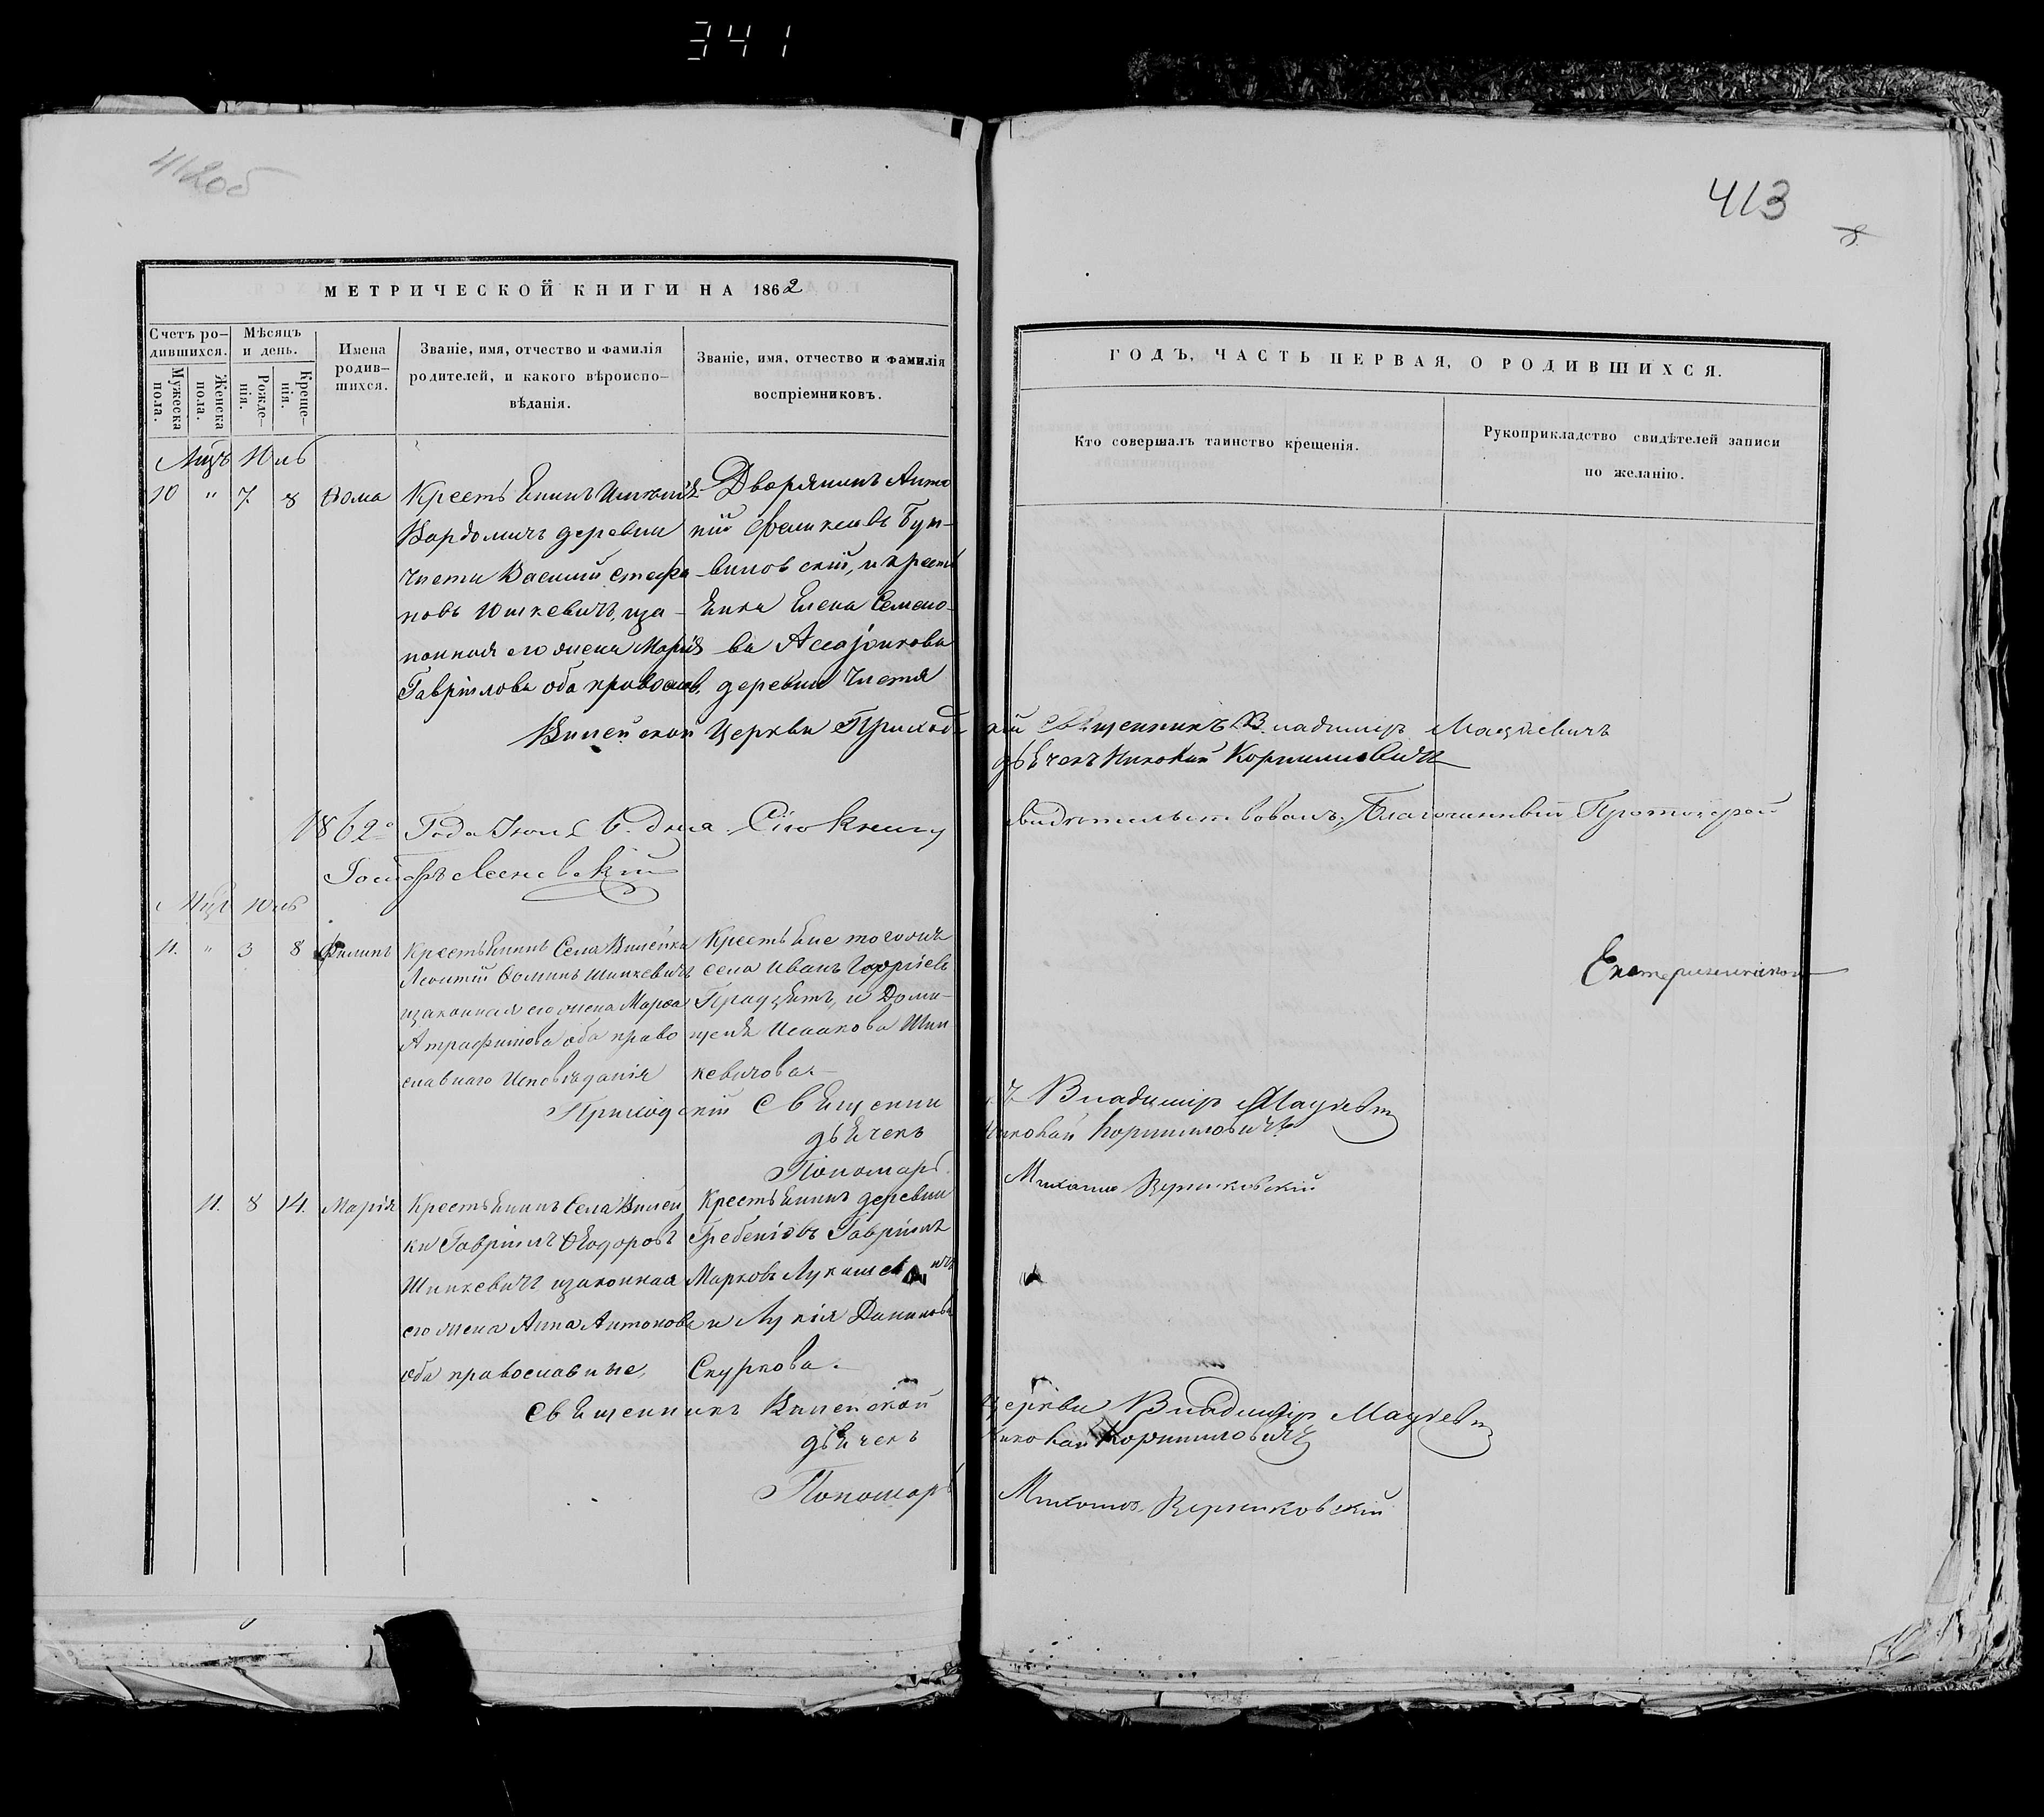 341
412об
413
МЕТРИЧЕСКОЙ КНИГИ НА 1862
Счетъ ро-
дившихся.
Мужеска
пола.
Женска
пола.
Мѣсяцъ
и день.
Рожде-
нія.
Креще-
нія.
Имена
родив-
шихся.
Званіе, имя, отчество и фамилія
родителей, и какого вѣроиспо-
вѣданія.
Званіе, имя, отчество и фамилія
воспріемниковъ.
ГОДЪ, ЧАСТЬ ПЕРВАЯ, О РОДИВШИХСЯ.
Кто совершалъ таинство крещенія.
Рукоприкладство свидѣтелей записи
по желанію.
Мцъ Юль
10 " 7. 8 Ѳома
Крестьянинъ
деревни
Чисти Василій Стефа-
новъ Юшкевичъ, иза-
конная его жена Марія
Гавріилова оба православ.
Дворянинъ Анто
ній Феликсовъ Бут-
виловскій, и крест
янка Елена Семено-
ва
деревни Чистя
Вилейской Церкви Приходскій Священникъ Владиміръ Мацкевичъ
дьячекъ Николай Корниловичъ
1862 Года Іюля 6. дня Сію книгу свидѣтельствовалъ Благочинный Протоіерей
Іосифъ
Мцъ Юль
11. " 3 8 Филипъ
Крестьянинъ Села Вилейка
Леонтій Ѳоминъ Шипкевичъ
изаконная его жена Марѳа
оба право
славнаго Исповѣданія
Крестьяне тогожъ
села Иванъ
и Доми-
Исаакова Шип
кевичова.
Приходскій Священникъ Владиміръ Мацкевичъ
дьячекъ Николай Корниловичъ
Пономарь Михаилъ Верниковскій
11. 8 14. Марія
Крестьянинъ Села Вилей
ки Гавріилъ Ѳеодоровъ
Шипкевичъ изаконная
его жена Анна Антонова
оба православные,
Крестьянинъ деревни
Гавріилъ
Марковъ Лукашевичъ
и Лукія Данилова
Скуркова.
Священникъ Вилейской Церкви Владиміръ Мацкевичъ
дьячекъ Николай Корниловичъ
Пономарь Михаилъ Верниковскій